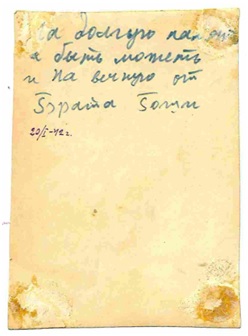 На долгую память
а быть можетъ
и на вечную от
Брата Бори
20/I-42 г.